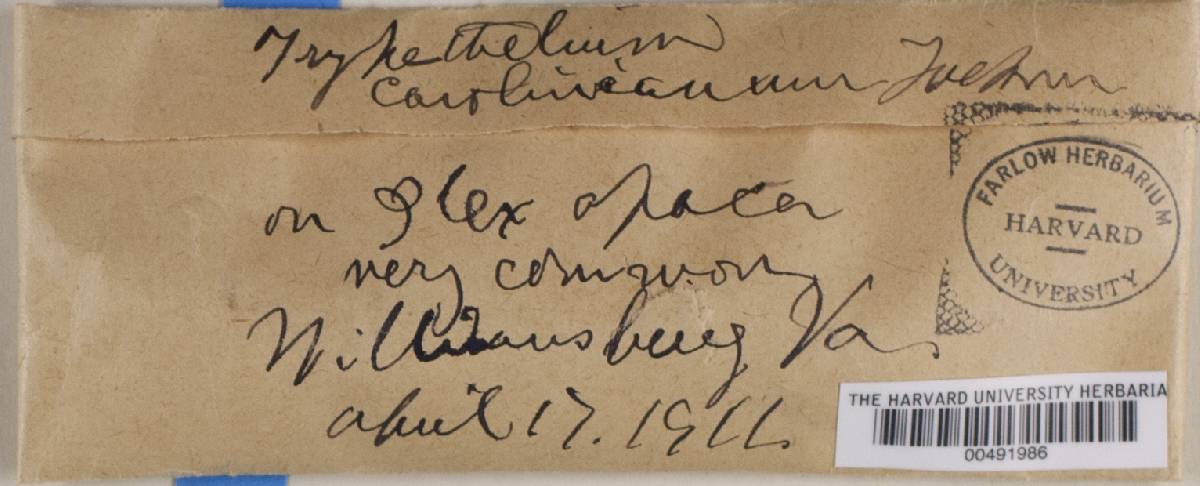 Trypethelium
carolinianum Tuckerm
on Ilex opaca
very common
Williamsburg Va.
april 17. 1911.
FARLOW HERBARIUM
HARVARD
UNIVERSITY
THE HARVARD UNIVERSITY HERBARIA
00491986